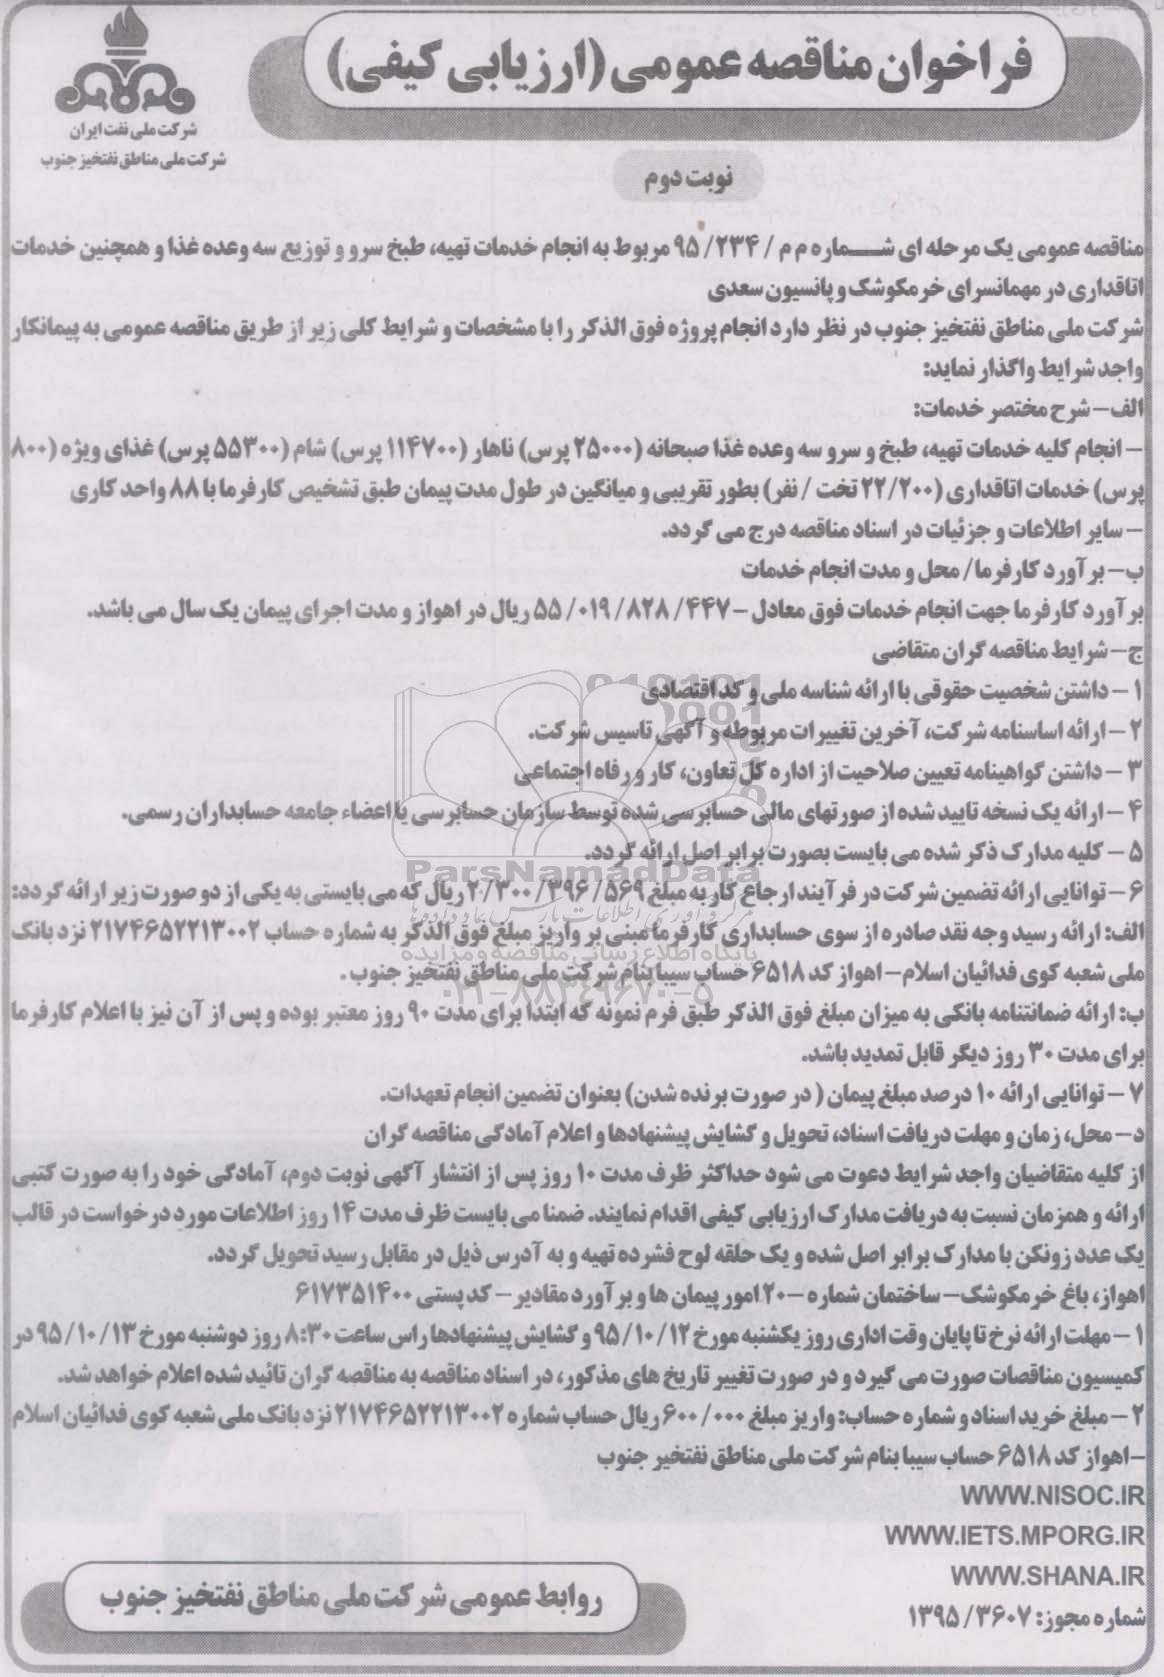 فراخوان مناقصه عمومی (ارزیابی کیفی)
شرکت ملی نفت ایران
شرکت ملی مناطق نفتخیز جنوب
نوبت دوم
مناقصه عمومی یک مرحله ای شـــماره م م / ۹۵/۲۳۴ مربوط به انجام خدمات تهیه، طبخ سرو و توزیع سه وعده غذا و همچنین خدمات
اتاقداری در مهمانسرای خرمکوشک و پانسیون سعدی
شرکت ملی مناطق نفتخیز جنوب در نظر دارد انجام پروژه فوق الذکر را با مشخصات و شرایط کلی زیر از طریق مناقصه عمومی به پیمانکار
واجد شرایط واگذار نماید:
الف– شرح مختصر خدمات:
– انجام کلیه خدمات تهیه، طبخ و سرو سه وعده غذا صبحانه (۲۵۰۰۰ پرس) ناهار (۱۱۴۷۰۰ پرس) شام (۵۵۳۰۰ پرس) غذای ویژه (۸۰۰
پرس) خدمات اتاقداری (۲۲/۲۰۰ تخت / نفر) بطور تقریبی و میانگین در طول مدت پیمان طبق تشخیص کارفرما با ۸۸ واحد کاری
– سایر اطلاعات و جزئیات در اسناد مناقصه درج می گردد.
ب– برآورد کارفرما/ محل و مدت انجام خدمات
برآورد کارفرما جهت انجام خدمات فوق معادل –۵۵/۰۱۹/۸۲۸/۴۴۷ ریال در اهواز و مدت اجرای پیمان یک سال می باشد.
ج– شرایط مناقصه گران متقاضی
۱ – داشتن شخصیت حقوقی با ارائه شناسه ملی و کد اقتصادی
۲ – ارائه اساسنامه شرکت، آخرین تغییرات مربوطه و آگهی تاسیس شرکت.
۳ – داشتن گواهینامه تعیین صلاحیت از اداره کل تعاون، کار و رفاه اجتماعی
۴ – ارائه یک نسخه تایید شده از صورتهای مالی حسابرسی شده توسط سازمان حسابرسی یا اعضاء جامعه حسابداران رسمی.
۵ – کلیه مدارک ذکر شده می بایست بصورت برابر اصل ارائه گردد.
ParsNamadData
۶ – توانایی ارائه تضمین شرکت در فرآیند ارجاع کار به مبلغ ۲/۳۰۰/۳۹۶/۵۶۹ ریال که می بایستی به یکی از دو صورت زیر ارائه گردد:
مرکز فرآوری اطلاعات پارس نماد داده ها
الف: ارائه رسید وجه نقد صادره از سوی حسابداری کارفرما مبنی بر واریز مبلغ فوق الذکر به شماره حساب ۲۱۷۴۶۵۲۲۱۳۰۰۲ نزد بانک
پایگاه اطلاع رسانی مناقصه و مزایده
ملی شعبه کوی فدائیان اسلام– اهواز کد ۶۵۱۸ حساب سیبا بنام شرکت ملی مناطق نفتخیز جنوب.
۰۲۱–۸۸۳۴۹۶۷۰–۵
ب: ارائه ضمانتنامه بانکی به میزان مبلغ فوق الذکر طبق فرم نمونه که ابتدا برای مدت ۹۰ روز معتبر بوده و پس از آن نیز با اعلام کارفرما
برای مدت ۳۰ روز دیگر قابل تمدید باشد.
۷ – توانایی ارائه ۱۰ درصد مبلغ پیمان ( در صورت برنده شدن) بعنوان تضمین انجام تعهدات.
د– محل، زمان و مهلت دریافت اسناد، تحویل و گشایش پیشنهادها و اعلام آمادگی مناقصه گران
از کلیه متقاضیان واجد شرایط دعوت می شود حداکثر ظرف مدت ۱۰ روز پس از انتشار آگهی نوبت دوم، آمادگی خود را به صورت کتبی
ارائه و همزمان نسبت به دریافت مدارک ارزیابی کیفی اقدام نمایند. ضمنا می بایست ظرف مدت ۱۴ روز اطلاعات مورد درخواست در قالب
یک عدد زونکن با مدارک برابر اصل شده و یک حلقه لوح فشرده تهیه و به آدرس ذیل در مقابل رسید تحویل گردد.
اهواز، باغ خرمکوشک– ساختمان شماره –۲۰ امور پیمان ها و برآورد مقادیر– کد پستی ۶۱۷۳۵۱۴۰۰
۱ – مهلت ارائه نرخ تا پایان وقت اداری روز یکشنبه مورخ ۹۵/۱۰/۱۲ و گشایش پیشنهادها راس ساعت ۸:۳۰ روز دوشنبه مورخ ۹۵/۱۰/۱۳ در
کمیسیون مناقصات صورت می گیرد و در صورت تغییر تاریخ های مذکور، در اسناد مناقصه به مناقصه گران تائید شده اعلام خواهد شد.
۲ – مبلغ خرید اسناد و شماره حساب: واریز مبلغ ۶۰۰/۰۰۰ ریال حساب شماره ۲۱۷۴۶۵۲۲۱۳۰۰۲ نزد بانک ملی شعبه کوی فدائیان اسلام
–اهواز کد ۶۵۱۸ حساب سیبا بنام شرکت ملی مناطق نفتخیر جنوب
WWW.NISOC.IR
WWW.IETS.MPORG.IR
WWW.SHANA.IR
شماره مجوز: ۱۳۹۵/۳۶۰۷
روابط عمومی شرکت ملی مناطق نفتخیز جنوب